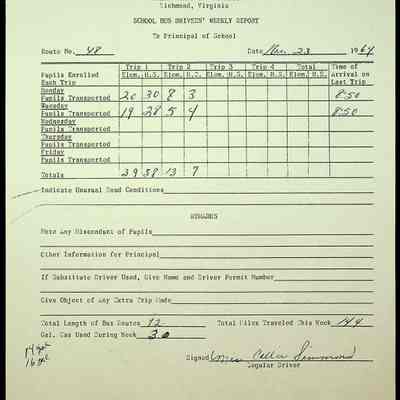 Richmond, Virginia
SCHOOL BUS DRIVERS' WEEKLY REPORT
To Principal of School
Route No. 48 Date Nov. 23 1964
Trip 1 Trip 2 Trip 3 Trip 4 Total Time of
Pupils Enrolled Elem. H.S. Elem. H.S. Elem. H.S. Elem. H.S. Elem. H.S. Arrival on
Each Trip Last Trip
Monday
Pupils Transported 20 30 8 3 8:50
Tuesday
Pupils Transported 19 28 5 4 8:50
Wednesday
Pupils Transported
Thursday
Pupils Transported
Friday
Pupils Transported
Totals 39 58 13 7
Indicate Unusual Road Conditions
REMARKS
Note Any Misconduct of Pupils
Other Information for Principal
If Substitute Driver Used, Give Name and Driver Permit Number
Give Object of Any Extra Trip Made
Total Length of Bus Routes 72 Total Miles Traveled This Week 144
Gal. Gas Used During Week 30
14 gal
16 gal
Signed Miss Simmons
Regular Driver